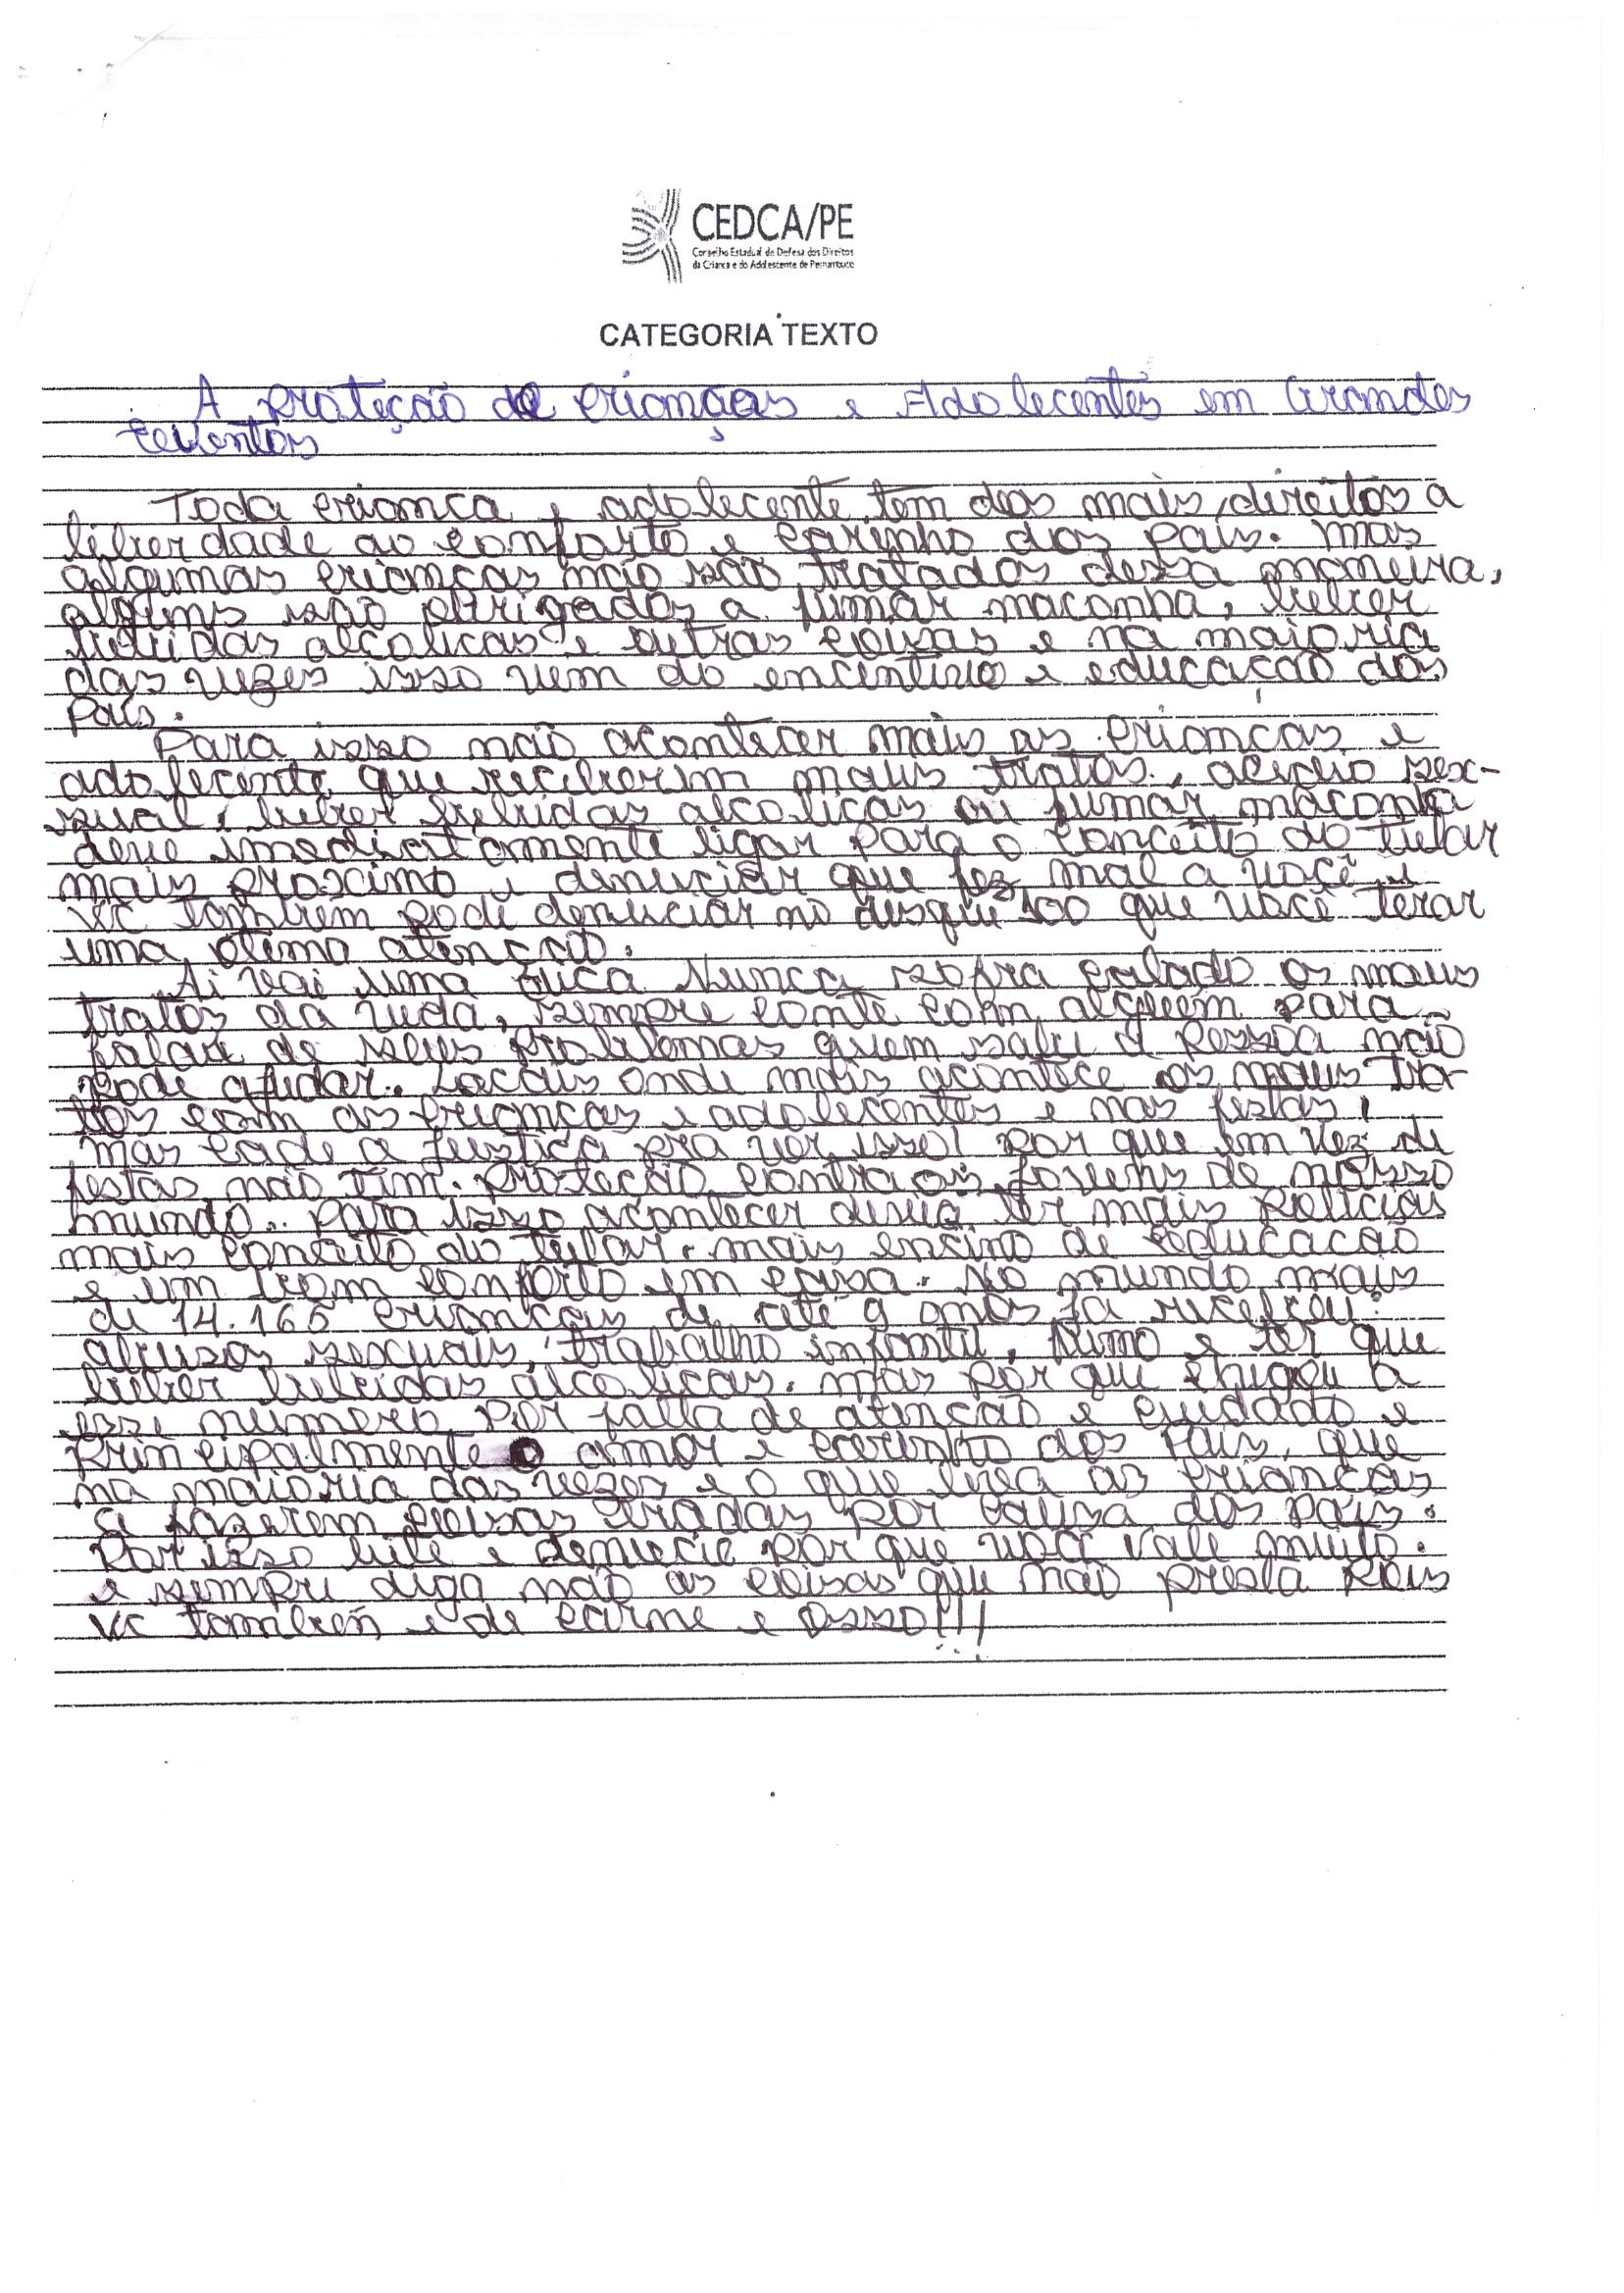 CEDCA/PE
Conselho Estadual de Defesa dos Direitos
da Criança e do Adolescente de Pernambuco
CATEGORIA TEXTO
A proteção de crianças e Adolecentes em Grandes
eventos
Toda crianca e adolecente tem dos mais direitos a
liberdade ao conforto e carinho dos pais. mas
algumas criancas não são tratados dessa maneira,
alguns são obrigados a fumar maconha, beber
bebidas alcolicas e outras coisas e na maioria
das vezes isso vem do encentivo e educação dos
pais.
Para isso não acontecer mais as criancas e
adolecente que receberem maus tratos, acedio sex-
sual, beber bebidas alcolicas ou fumar maconha
deve imediatamente ligar para o conceito do tutar
mais proximo e denuciar que fez mal a você e
vc tambem pode denuciar no disque 100 que você terar
uma otima atencão.
Ai vai uma Nunca sofra calado os maus
tratos da vida, sempre conte com alguem para
falar de seus problemas quem sabe a pessoa não
pode ajudar. Locais onde mais acontece os maus tra-
tos com as criancas e adolecentes e nas festas,
mas cade a justica pra ver isso! por que em vez de
festas não tem. proteção contra os jovens de nosso
mundo.. para isso acontecer devia ter mais policias
mais conceito do tutar. mais ensino de educacão
e um bom conforto em casa. No mundo mais
de 14.165 criancas de até 9 anos ja recebeu:
abusos sexuais, trabalho infantil, fumo e ter que
beber bebidas alcolicas. mas por que chegou a
esse numero por falta de atencão e cuidado e
principalmente o amor e carinho dos pais, que
na maioria das vezes e o que leva as criancas
a fazerem coisas eradas por causa dos pais.
Por isso lute e denucie por que você vale muito.
e sempre diga não as coisas que não presta pois
vc tambem e de carne e osso!!!